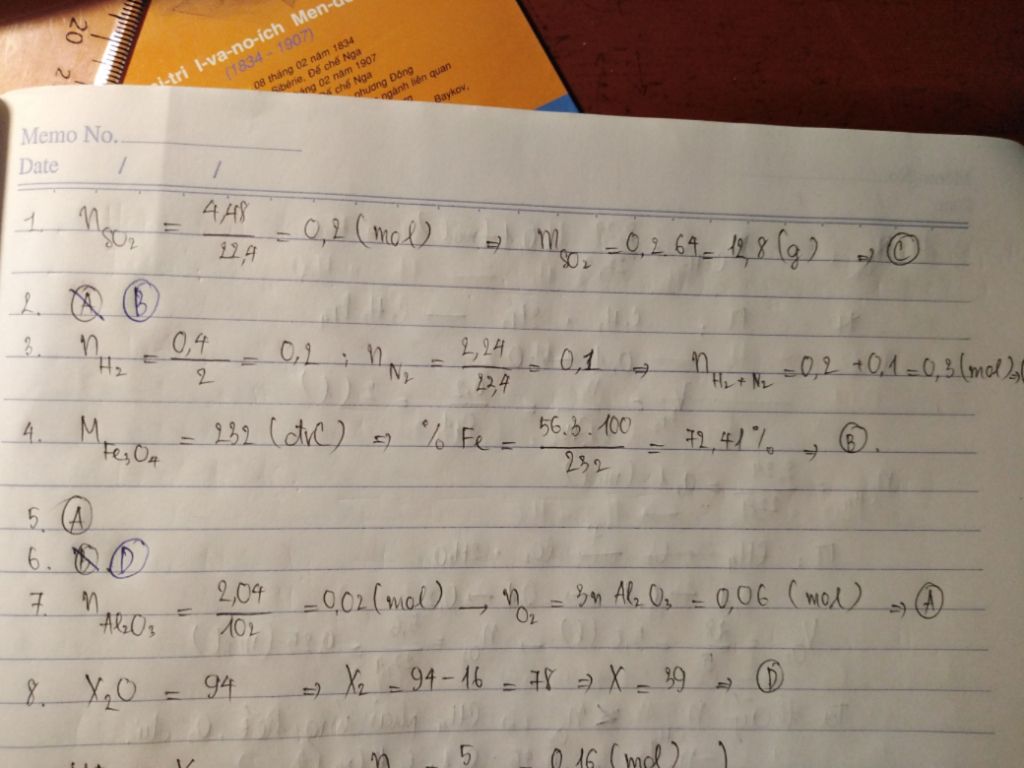 20
I-va-no-ích Men-de
(1834 - 1907)
08 tháng 02 năm 1834
Sibérie, Đế chế Nga
02 năm 1907
chế Nga
phương Đông
ngành liên quan
Baykov,
Memo No.
Date / /
1. n SO2 = 4,48 / 22,4 = 0,2 (mol) ⇒ m SO2 = 0,2.64 = 12,8 (g) ⇒ C
2. A B
3. n H2 = 0,4 / 2 = 0,2 ; n N2 = 2,24 / 22,4 = 0,1 ⇒ n H2 + N2 = 0,2 + 0,1 = 0,3 (mol) ⇒
4. M Fe3O4 = 232 (đvC) ⇒ % Fe = 56.3.100 / 232 = 72,41 % → B.
5. A
6. D
7. n Al2O3 = 2,04 / 102 = 0,02 (mol) → n O2 = 3n Al2O3 = 0,06 (mol) ⇒ A
8. X2O = 94 ⇒ X2 = 94 - 16 = 78 ⇒ X = 39 ⇒ D
n = 5 = 0,16 (mol)